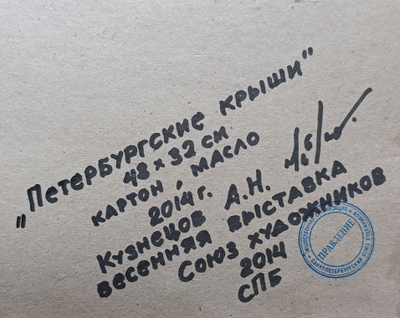 "Петербургские крыши"
48 х 32 см
картон, масло
2014 г.
Кузнецов А.Н.
весенняя выставка
Союз художников
2014
СПБ
ПРАВЛЕНИЕ